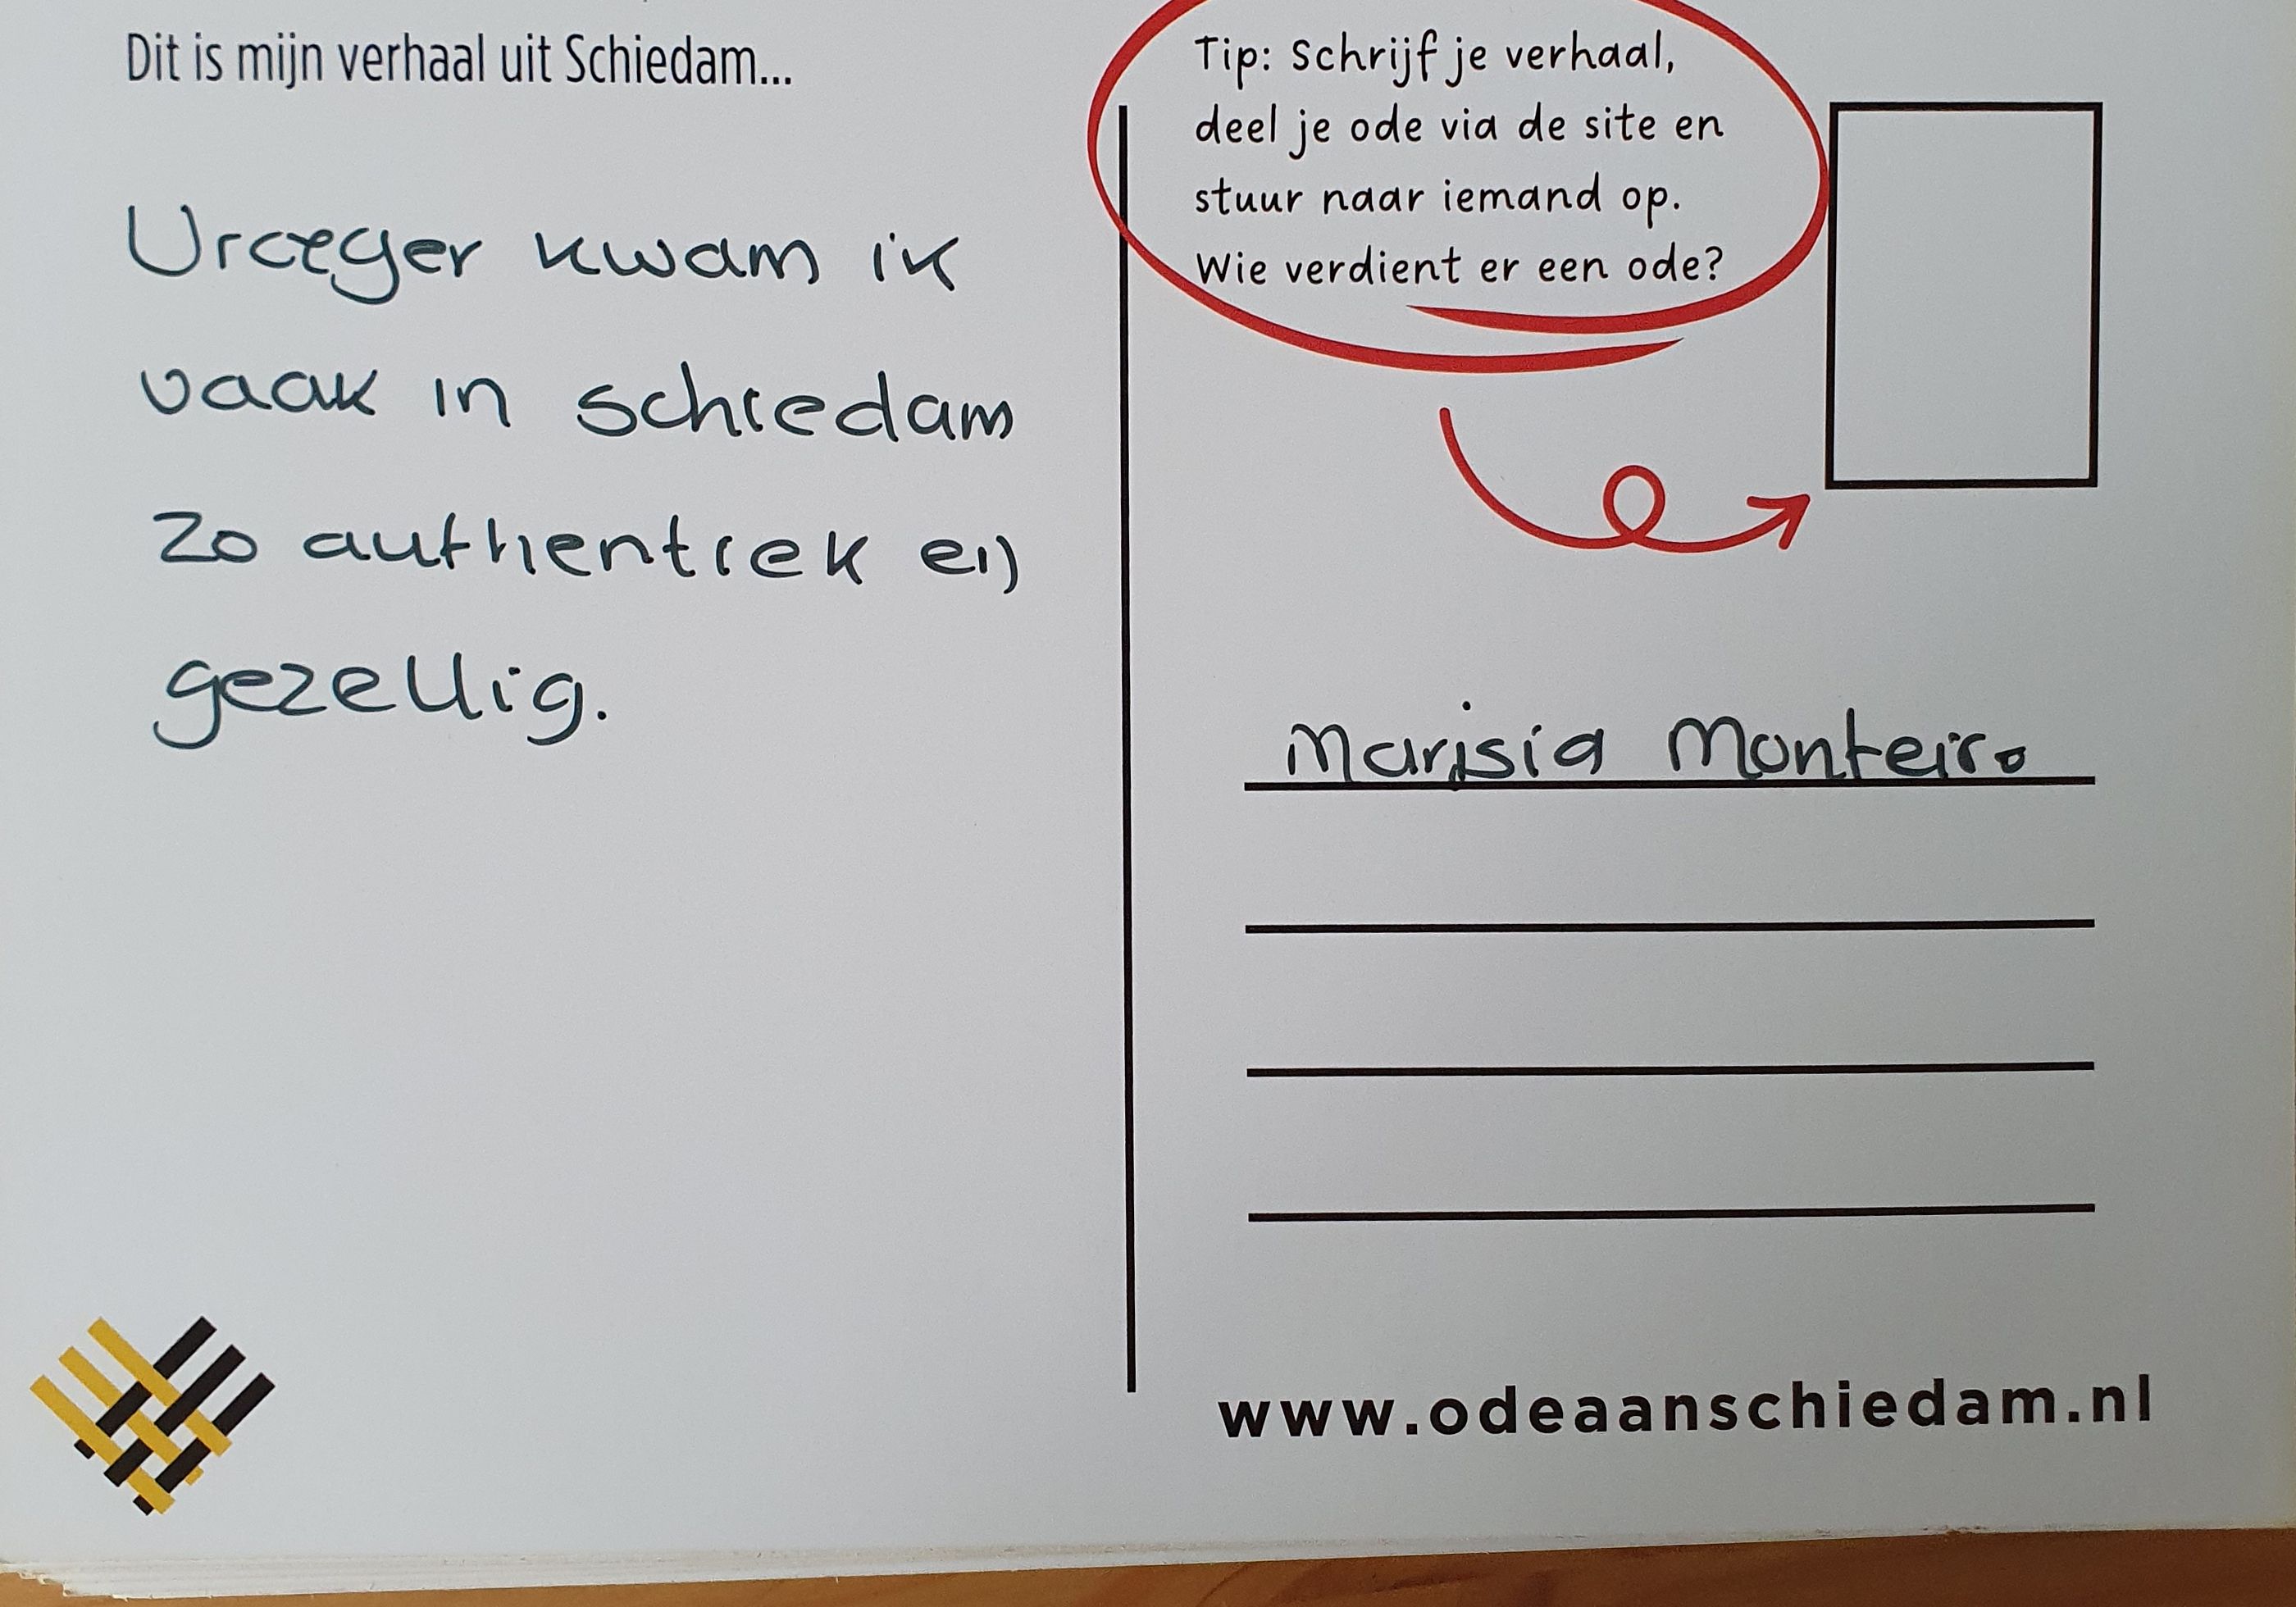 Dit is mijn verhaal uit Schiedam...
Vroeger kwam ik
vaak in schiedam
zo authentiek en
gezellig.
Tip: Schrijf je verhaal,
deel je ode via de site en
stuur naar iemand op.
Wie verdient er een ode?
Marisia Monteiro
www.odeaanschiedam.nl